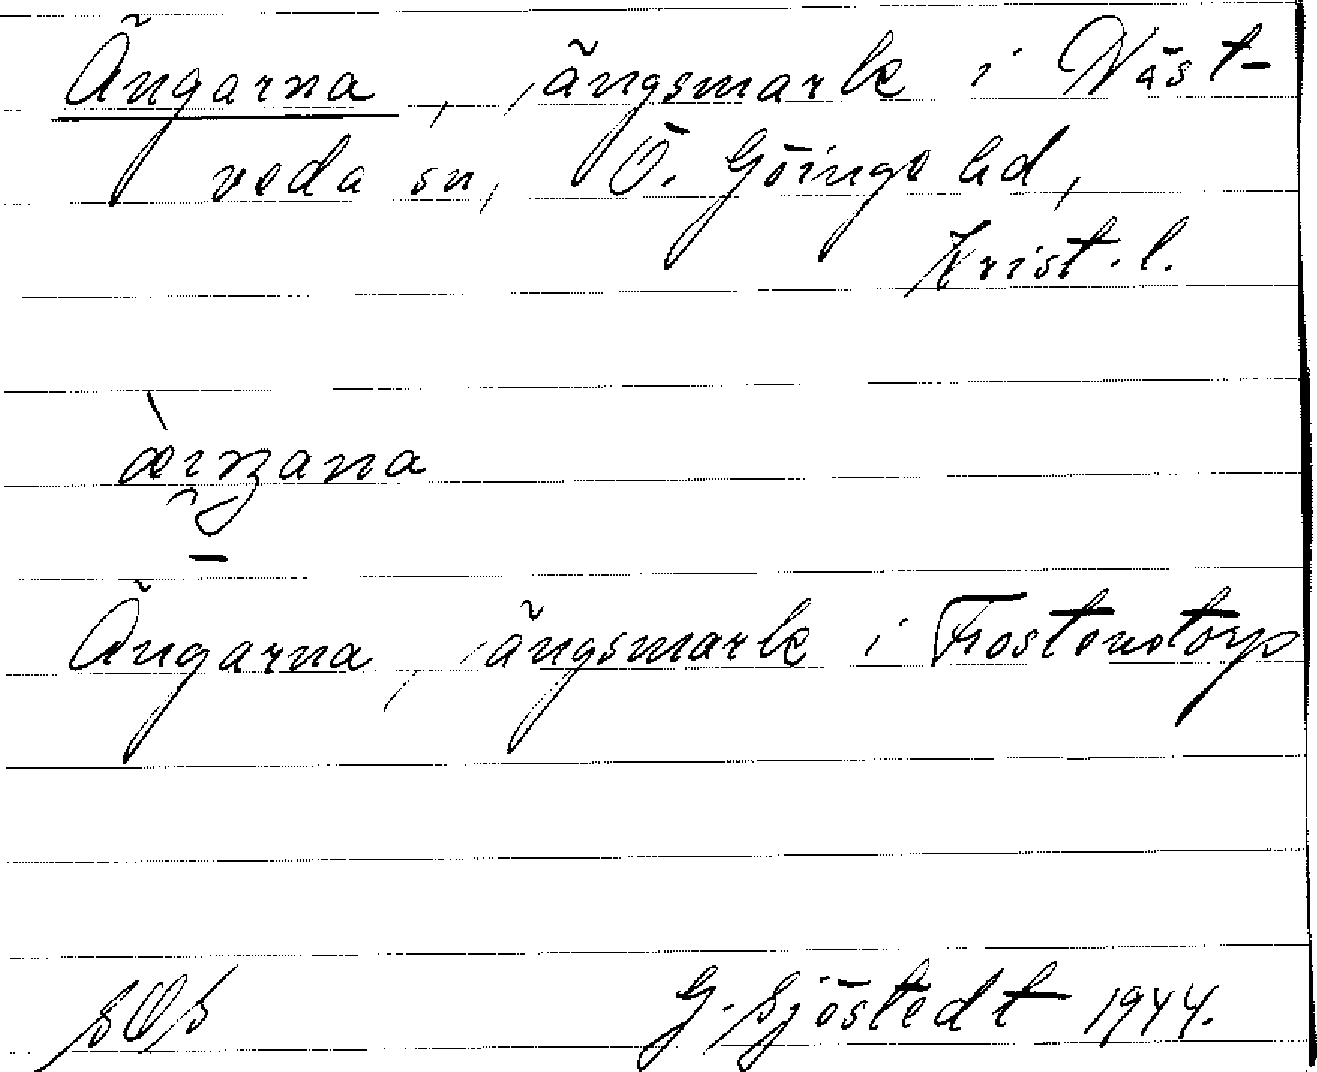 Ängarna, ängsmark i Väst-
veda sn, Ö. Göinge hd,
Krist. l.
Ängarna, ängsmark i Frostentorp
SOS G. Sjöstedt 1944.